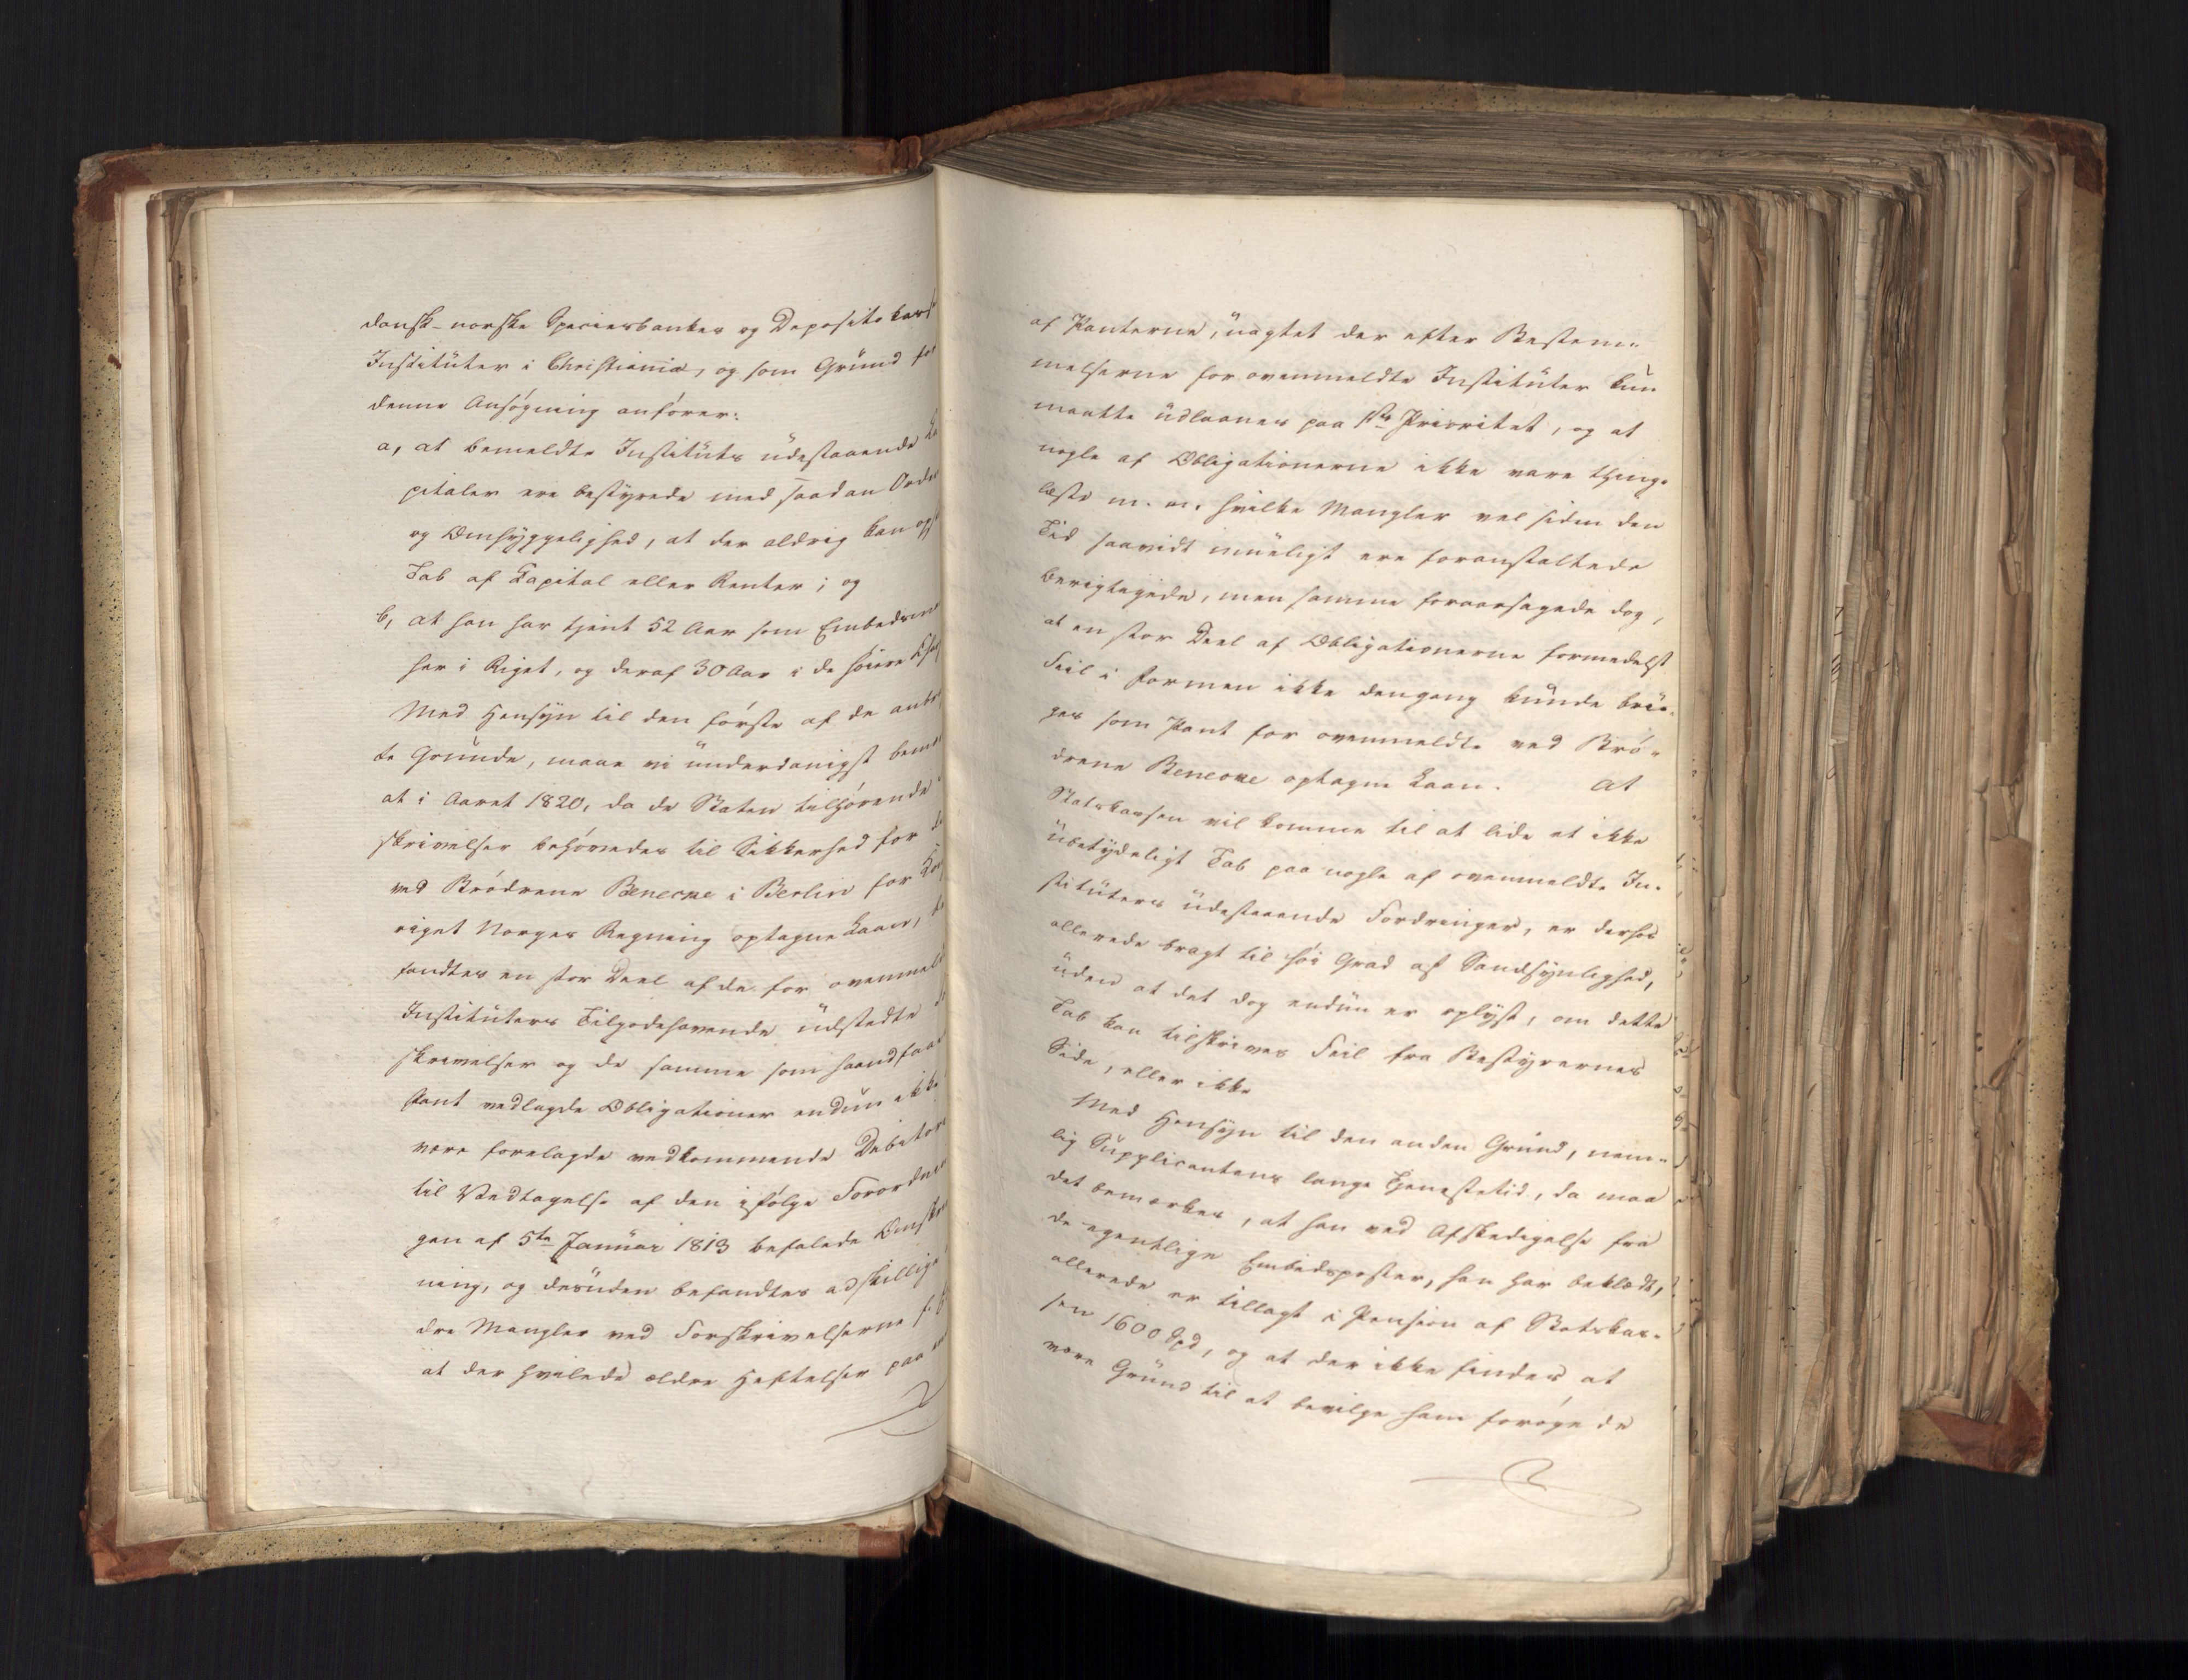 dansk-norske Speciesbankes og Deposito Kass
Instituter i Christiania, og som Grund for
denne Ansøgning anfører:
a, at bemeldte Instituts udestaaende Ka
pitaler ere bestyrede med saadan Orden
og Omhyggelighed, at der aldrig kan opst
Tab af Kapital eller Renter; og
b, at han har tjent 52 Aar som Embedsman
her i Riget, og deraf 30 Aar i de høiere
Med Hensyn til den første af de anbr
te Grunde, maae vi underdanigst bemær
at i Aaret 1820, da de Staten tilhørende
skrivelser behøvedes til Sikkerhed for de
ved Brødrene Benecke i Berlin for Kong
riget Norges Regning optagne Laan, be
fandtes en stor Deel af de for ovenmeld
Instituters Tilgodehavende udstedte
skrivelser og de samme som haandfaaet
Pant vedlagde Obligationer endnu ikke
være forelagde vedkommende Debitore
til Vedtagelse af den ifølge Forordnin
gen af 5te Januar 1813 befalede Omskriv
ning, og desuden befandtes adskillige
dre Mangler ved Forskrivelserne f. E
at der hvilede ældre Heftelser paa en
af Panterne, uagtet der efter Bestem-
melserne for ovenmeldte Instituter kun
maatte udlaanes paa 1ste Prioritet, og at
nogle af Obligationerne ikke vare thing-
læste m. m. hvilke Mangler vel siden den
Tid saavidt mueligt ere foranstaltede
berigtigede, men samme foraarsagede dog,
at en stor Deel af Obligationerne formedelst
Feil i Formen ikke dengang kunde brü-
ges som Pant for ovenmeldte ved Brø-
drene Benecke optagne Laan. At
Statskassen vil komme til at lide et ikke
ubetydeligt Tab paa nogle af ovenmeldte In-
stituters udestaaende Fordringer, er derhos
allerede bragt til høi Grad af Sandsynlighed,
uden at det dog endnu er oplyst, om dette
Tab kan tilskrives Feil fra Bestyrernes
Side, eller ikke
Med Hensyn til den anden Grund, nem-
lig Supplicantens lange Tjenestetid, da maa
det bemærkes, at han ved Afskedigelse fra
de egentlige Embedsposter, han har beklædt,
allerede er tillagt i Pension af Statskas-
sen 1600 Spd, og at der ikke findes at
være Grund til at bevilge ham forøgede